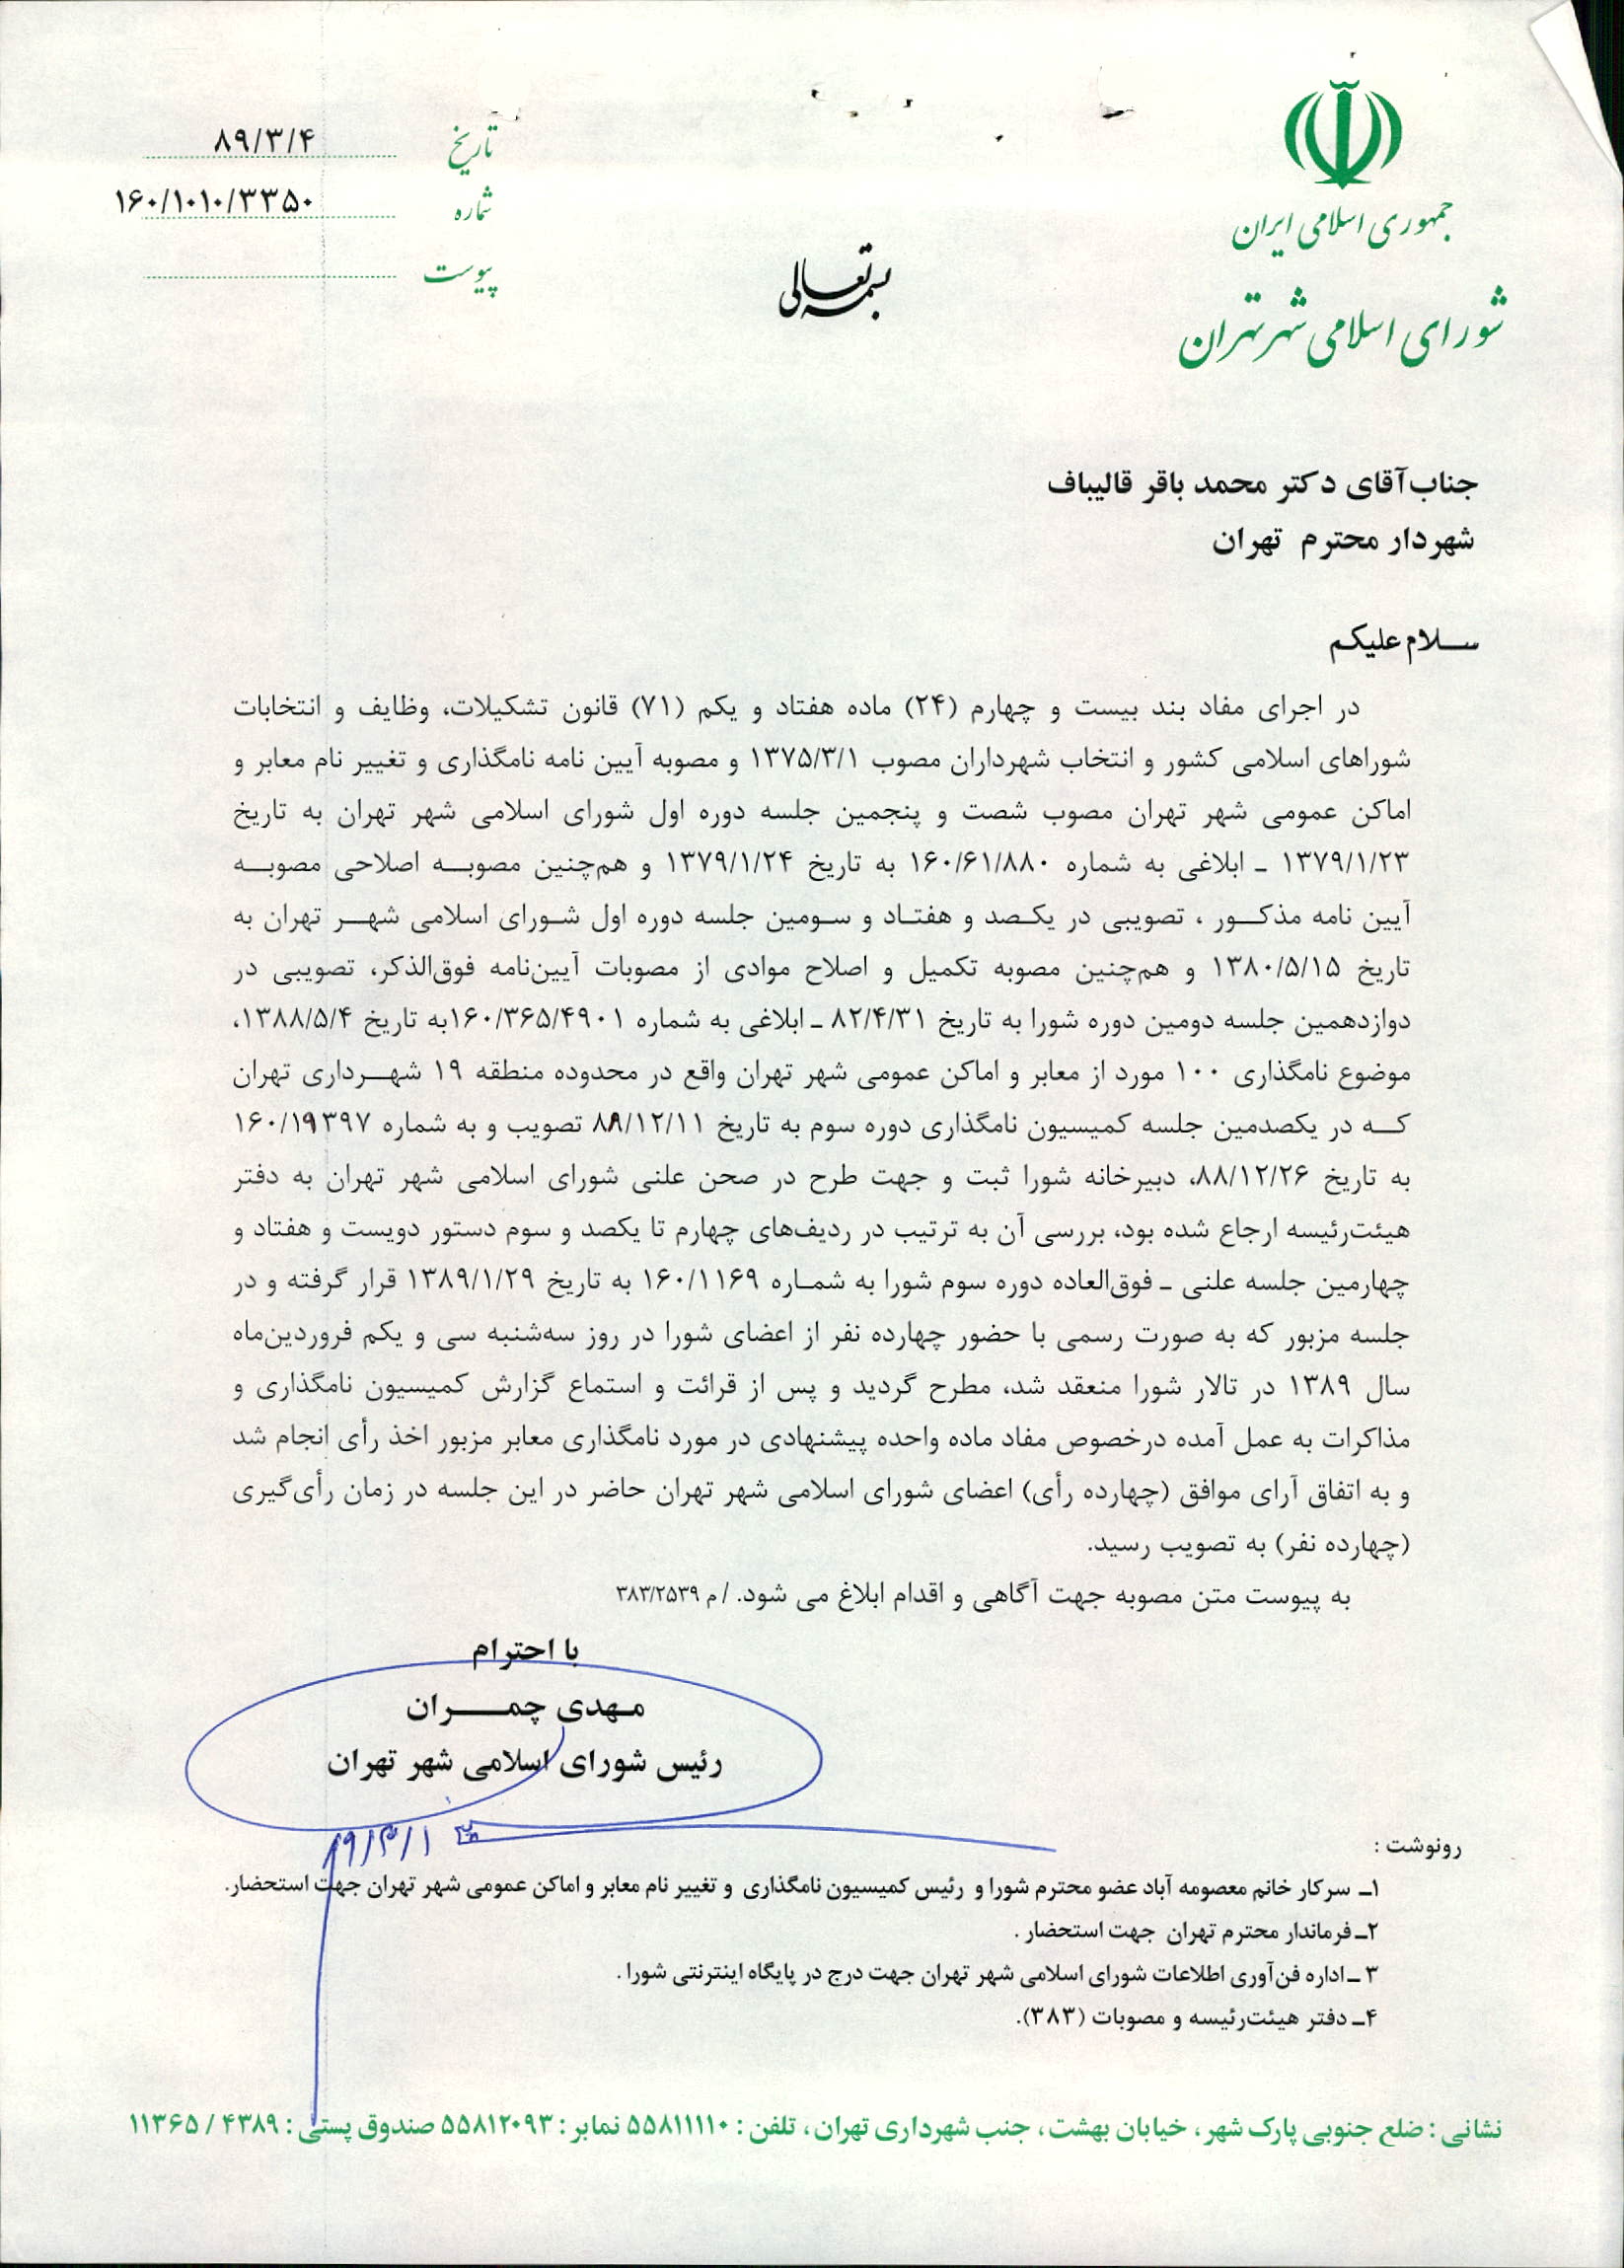 جمهوری اسلامی ایران
شورای اسلامی شهر تهران
بسمه تعالی
تاریخ ۸۹/۳/۴
شماره ۱۶۰/۱۰۱۰/۳۳۵۰
پیوست
جناب‌آقای دکتر محمد باقر قالیباف
شهردار محترم تهران
سلام علیکم
در اجرای مفاد بند بیست و چهارم (۲۴) ماده هفتاد و یکم (۷۱) قانون تشکیلات، وظایف و انتخابات
شوراهای اسلامی کشور و انتخاب شهرداران مصوب ۱۳۷۵/۳/۱ و مصوبه آیین نامه نامگذاری و تغییر نام معابر و
اماکن عمومی شهر تهران مصوب شصت و پنجمین جلسه دوره اول شورای اسلامی شهر تهران به تاریخ
۱۳۷۹/۱/۲۳ ـ ابلاغی به شماره ۱۶۰/۶۱/۸۸۰ به تاریخ ۱۳۷۹/۱/۲۴ و هم‌چنین مصوبه اصلاحی مصوبه
آیین نامه مذکور ، تصویبی در یکصد و هفتاد و سومین جلسه دوره اول شورای اسلامی شهر تهران به
تاریخ ۱۳۸۰/۵/۱۵ و هم‌چنین مصوبه تکمیل و اصلاح موادی از مصوبات آیین‌نامه فوق‌الذکر، تصویبی در
دوازدهمین جلسه دومین دوره شورا به تاریخ ۸۲/۴/۳۱ ـ ابلاغی به شماره ۱۶۰/۳۶۵/۴۹۰۱به تاریخ ۱۳۸۸/۵/۴،
موضوع نامگذاری ۱۰۰ مورد از معابر و اماکن عمومی شهر تهران واقع در محدوده منطقه ۱۹ شهرداری تهران
که در یکصدمین جلسه کمیسیون نامگذاری دوره سوم به تاریخ ۸۸/۱۲/۱۱ تصویب و به شماره ۱۶۰/۱۹۳۹۷
به تاریخ ۸۸/۱۲/۲۶، دبیرخانه شورا ثبت و جهت طرح در صحن علنی شورای اسلامی شهر تهران به دفتر
هیئت‌رئیسه ارجاع شده بود، بررسی آن به ترتیب در ردیف‌های چهارم تا یکصد و سوم دستور دویست و هفتاد و
چهارمین جلسه علنی ـ فوق‌العاده دوره سوم شورا به شماره ۱۶۰/۱۱۶۹ به تاریخ ۱۳۸۹/۱/۲۹ قرار گرفته و در
جلسه مزبور که به صورت رسمی با حضور چهارده نفر از اعضای شورا در روز سه‌شنبه سی و یکم فروردین‌ماه
سال ۱۳۸۹ در تالار شورا منعقد شد، مطرح گردید و پس از قرائت و استماع گزارش کمیسیون نامگذاری و
مذاکرات به عمل آمده درخصوص مفاد ماده واحده پیشنهادی در مورد نامگذاری معابر مزبور اخذ رأی انجام شد
و به اتفاق آرای موافق (چهارده رأی) اعضای شورای اسلامی شهر تهران حاضر در این جلسه در زمان رأی‌گیری
(چهارده نفر) به تصویب رسید.
به پیوست متن مصوبه جهت آگاهی و اقدام ابلاغ می شود. / م ۳۸۳/۲۵۳۹
با احترام
مهدی چمران
رئیس شورای اسلامی شهر تهران
۸۹/۳/۱
رونوشت :
۱ـ سرکار خانم معصومه آباد عضو محترم شورا و رئیس کمیسیون نامگذاری و تغییر نام معابر و اماکن عمومی شهر تهران جهت استحضار.
۲ـ فرماندار محترم تهران جهت استحضار .
۳ ـ اداره فن‌آوری اطلاعات شورای اسلامی شهر تهران جهت درج در پایگاه اینترنتی شورا .
۴ـ دفتر هیئت‌رئیسه و مصوبات (۳۸۳).
نشانی : ضلع جنوبی پارک شهر ، خیابان بهشت، جنب شهرداری تهران ، تلفن : ۵۵۸۱۱۱۱۰ نمابر : ۵۵۸۱۲۰۹۳ صندوق پستی : ۴۳۸۹ / ۱۱۳۶۵